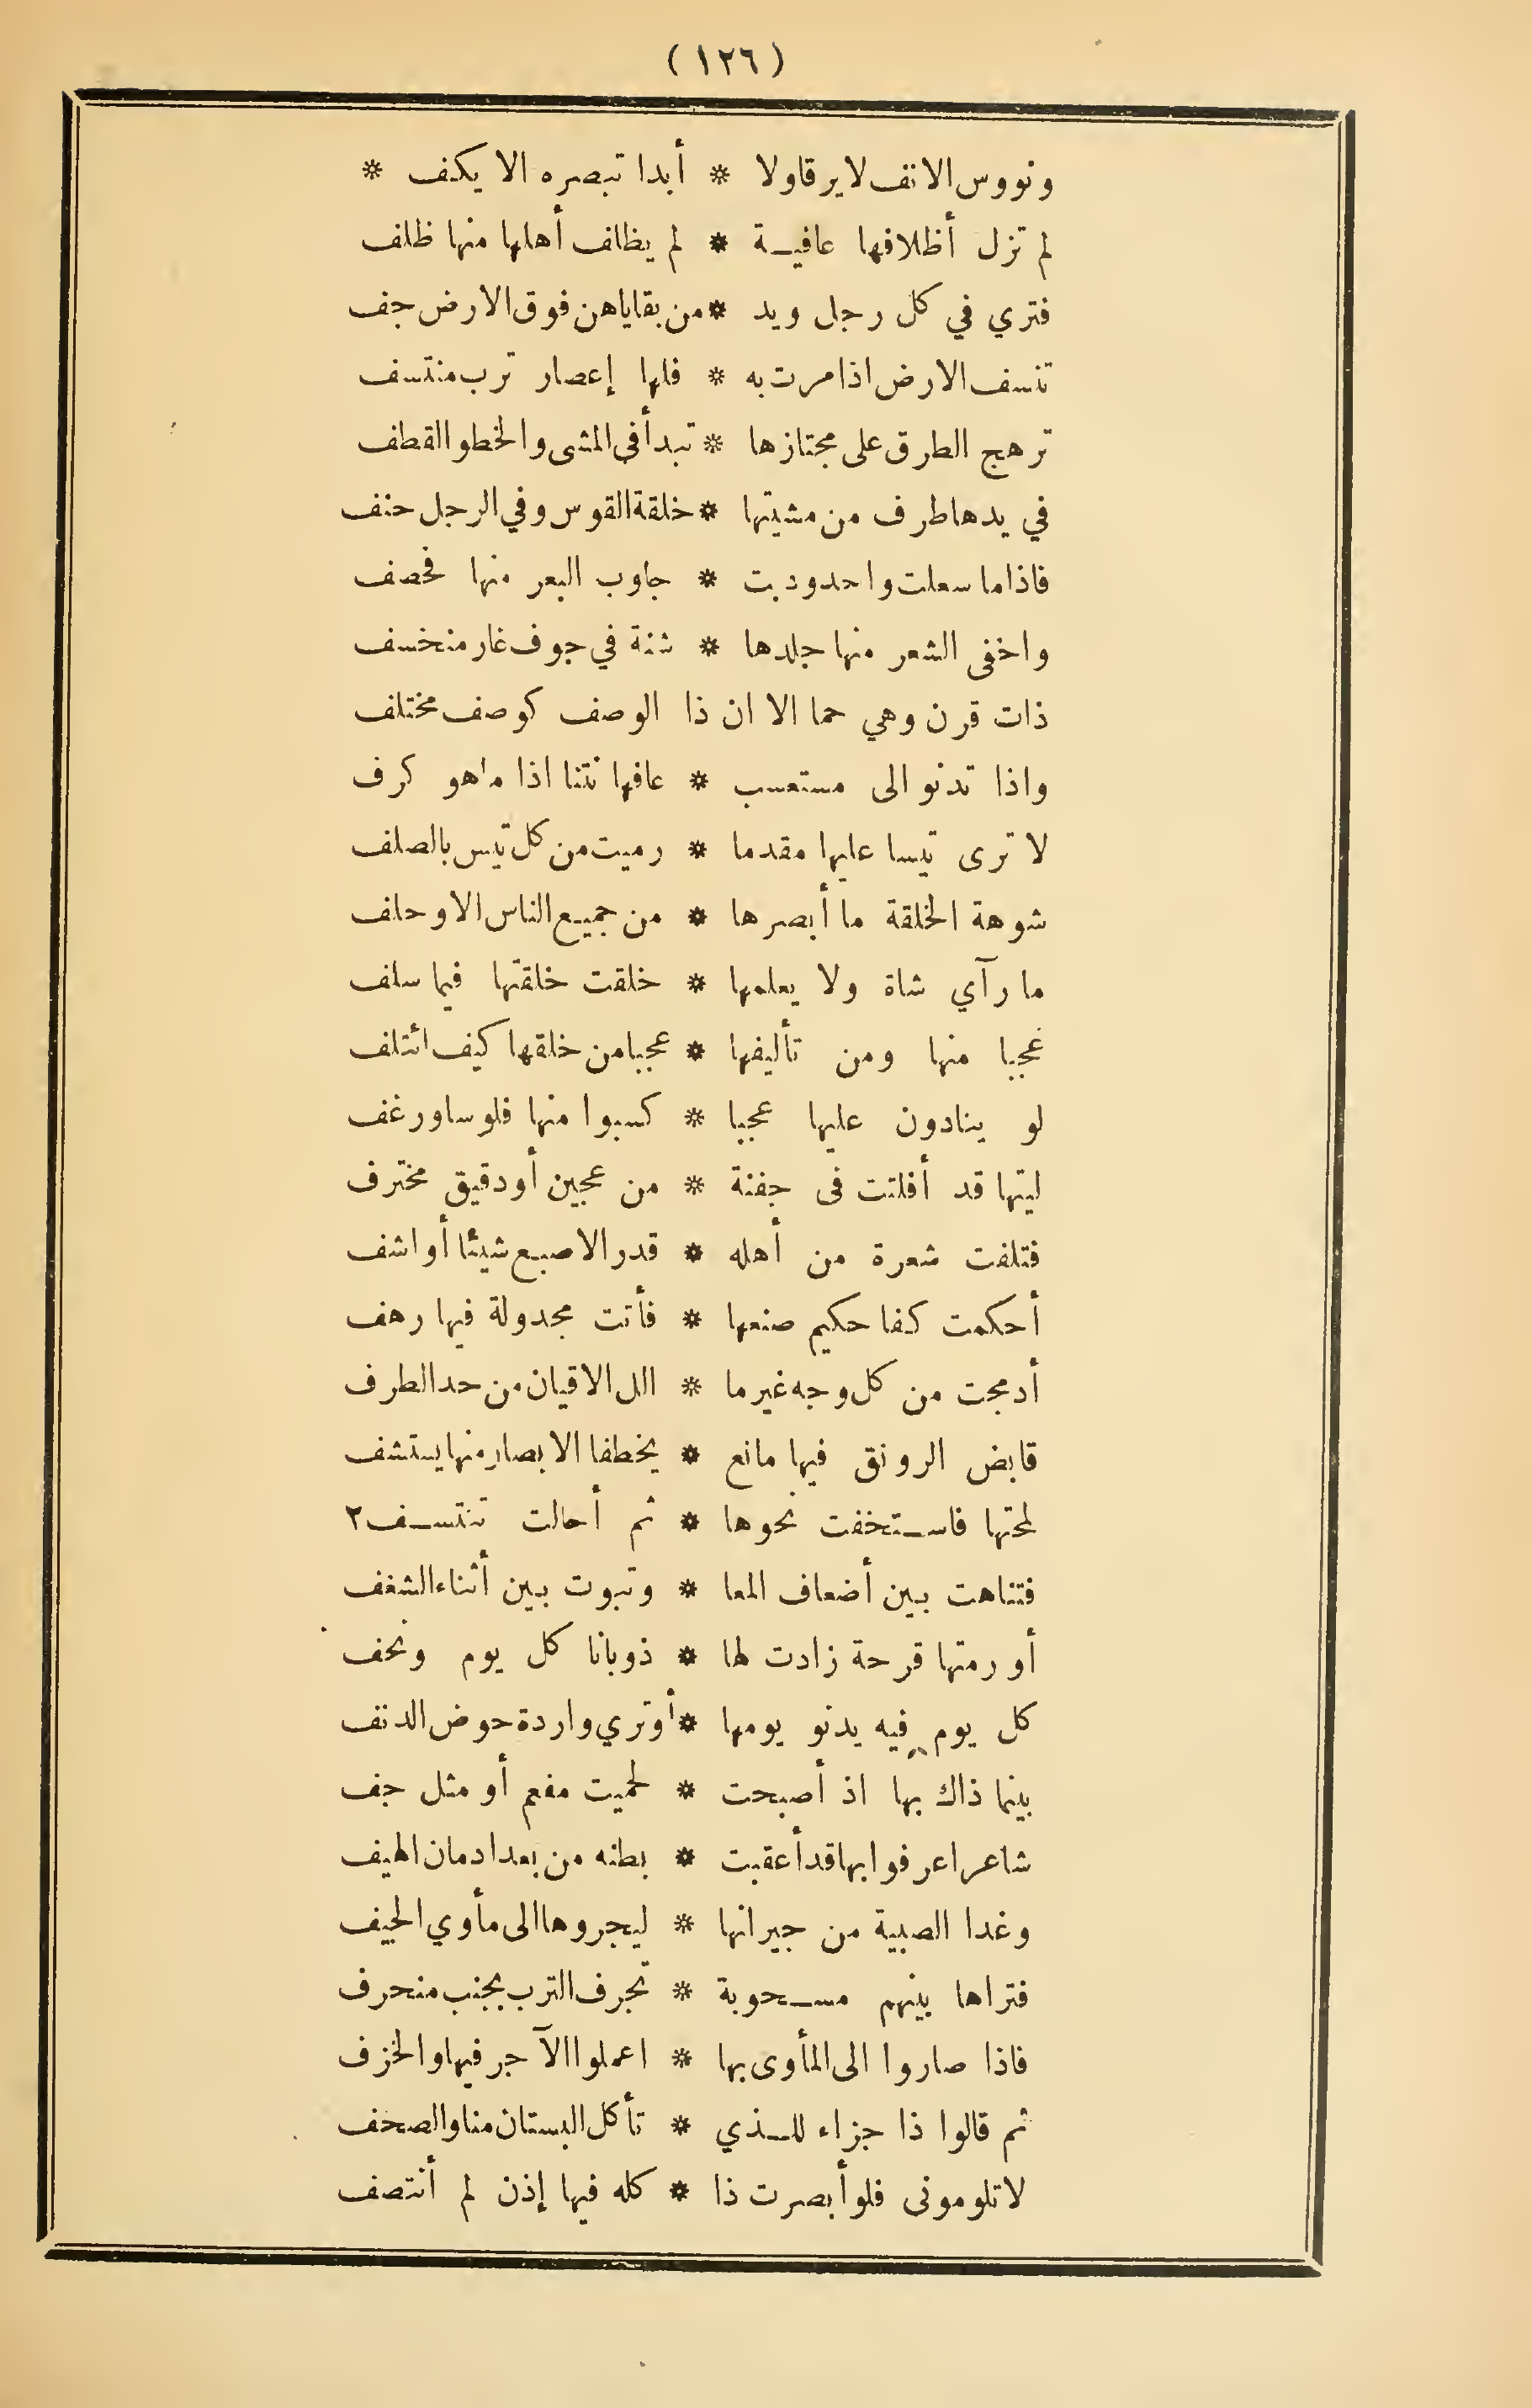 (١٢٦)
ونووس الانف لا يرقا ولا * أبدا تبصره الا يكف *
لم تزل أظلافها عافيـة * لم يظلف أهلها منها ظلف
فتري في كل رجل ويد * من بقاياهن فوق الارض جف
تنسف الارض اذا مرت به * فلها إعصار ترب منتسف
ترهج الطرق على مجتازها * تبدأ في المشى والخطو القطف
في يدها طرف من مشيتها * خلقة القوس وفي الرجل حنف
فاذا ما سعلت واحدودبت * جاوب البعر منها فخصف
واخفى الشعر منها جلدها * شنة في جوف غار منخسف
ذات قرن وهي حما الا ان ذا الوصف كوصف مختلف
واذا تدنو الى مستعسب * عافها نتنا اذا ما هو كرف
لا ترى تيسا عليها مقدما * رميت من كل تيس بالصلف
شوهة الخلقة ما أبصرها * من جميع الناس الا وحلف
ما رآي شاة ولا يعلمها * خلقت خلقتها فيما سلف
عجبا منها ومن تأليفها * عجبا من خلقها كيف ائتلف
لو ينادون عليها عجبا * كسبوا منها فلوسا ورغف
ليتها قد أفلتت فى جفنة * من عجين أو دقيق مخترف
فتلفت شعرة من أهله * قدر الاصبع شيئا أو اشف
أحكمت كفا حكيم صنعها * فأتت مجدولة فيها رهف
أدمجت من كل وجه غير ما * الل الاقيان من حد الطرف
قابض الرونق فيها مانع * يخطفا الابصار منها يستشف
لمحتها فاسـتخفت نحوها * ثم أحالت تنتسـف٢
فتناهت بين أضعاف المعا * وتبوت بين أثناء الشغف
أو رمتها قرحة زادت لها * ذوبانا كل يوم ونحف
كل يوم فيه يدنو يومها * أو تري واردة حوض الدنف
بينما ذاك بها اذ أصبحت * لحميت مفعم أو مثل جف
شاعرا عرفوا بها قد أعقبت * بطنه من بعد ادمان الهيف
وغدا الصبية من جيرانها * ليجروها الى مأوي الجيف
فتراها بينهم مسـحوبة * تجرف الترب بجنب منحرف
فاذا صاروا الى المأوى بها * اعملوا الآجر فيها والخزف
ثم قالوا ذا جزاء للـذي * تأكل البستان منا والصحف
لا تلومونى فلو أبصرت ذا * كله فيها إذن لم أنتصف